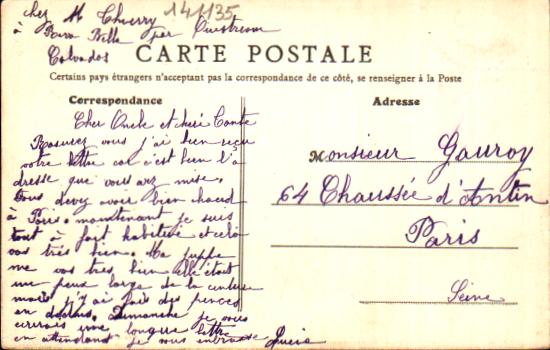 chez M Thierry
à Riva Bella par Ouistreham
Calvados
141135
CARTE POSTALE
Certains pays étrangers n'acceptant pas la correspondance de ce côté, se renseigner à la Poste
Correspondance
Cher Oncle et chère Tante
Rassurez vous j'ai bien reçu
votre lettre car c'est bien l'a
dresse que vous avez mise.
Vous devez avoir bien chaud
à Paris. maintenant je suis
tout à fait habituée et cela
vas très bien. Ma juppe
me vas très bien elle était
un peux large de la ceinture
mais j'y ai fais des pinces
en dedans. Dimanche je vous
écrirais une longue lettre
en attendant je vous embrasse Lucie
Adresse
Monsieur Gauroy
64 Chaussée d'Antin
Paris
Seine